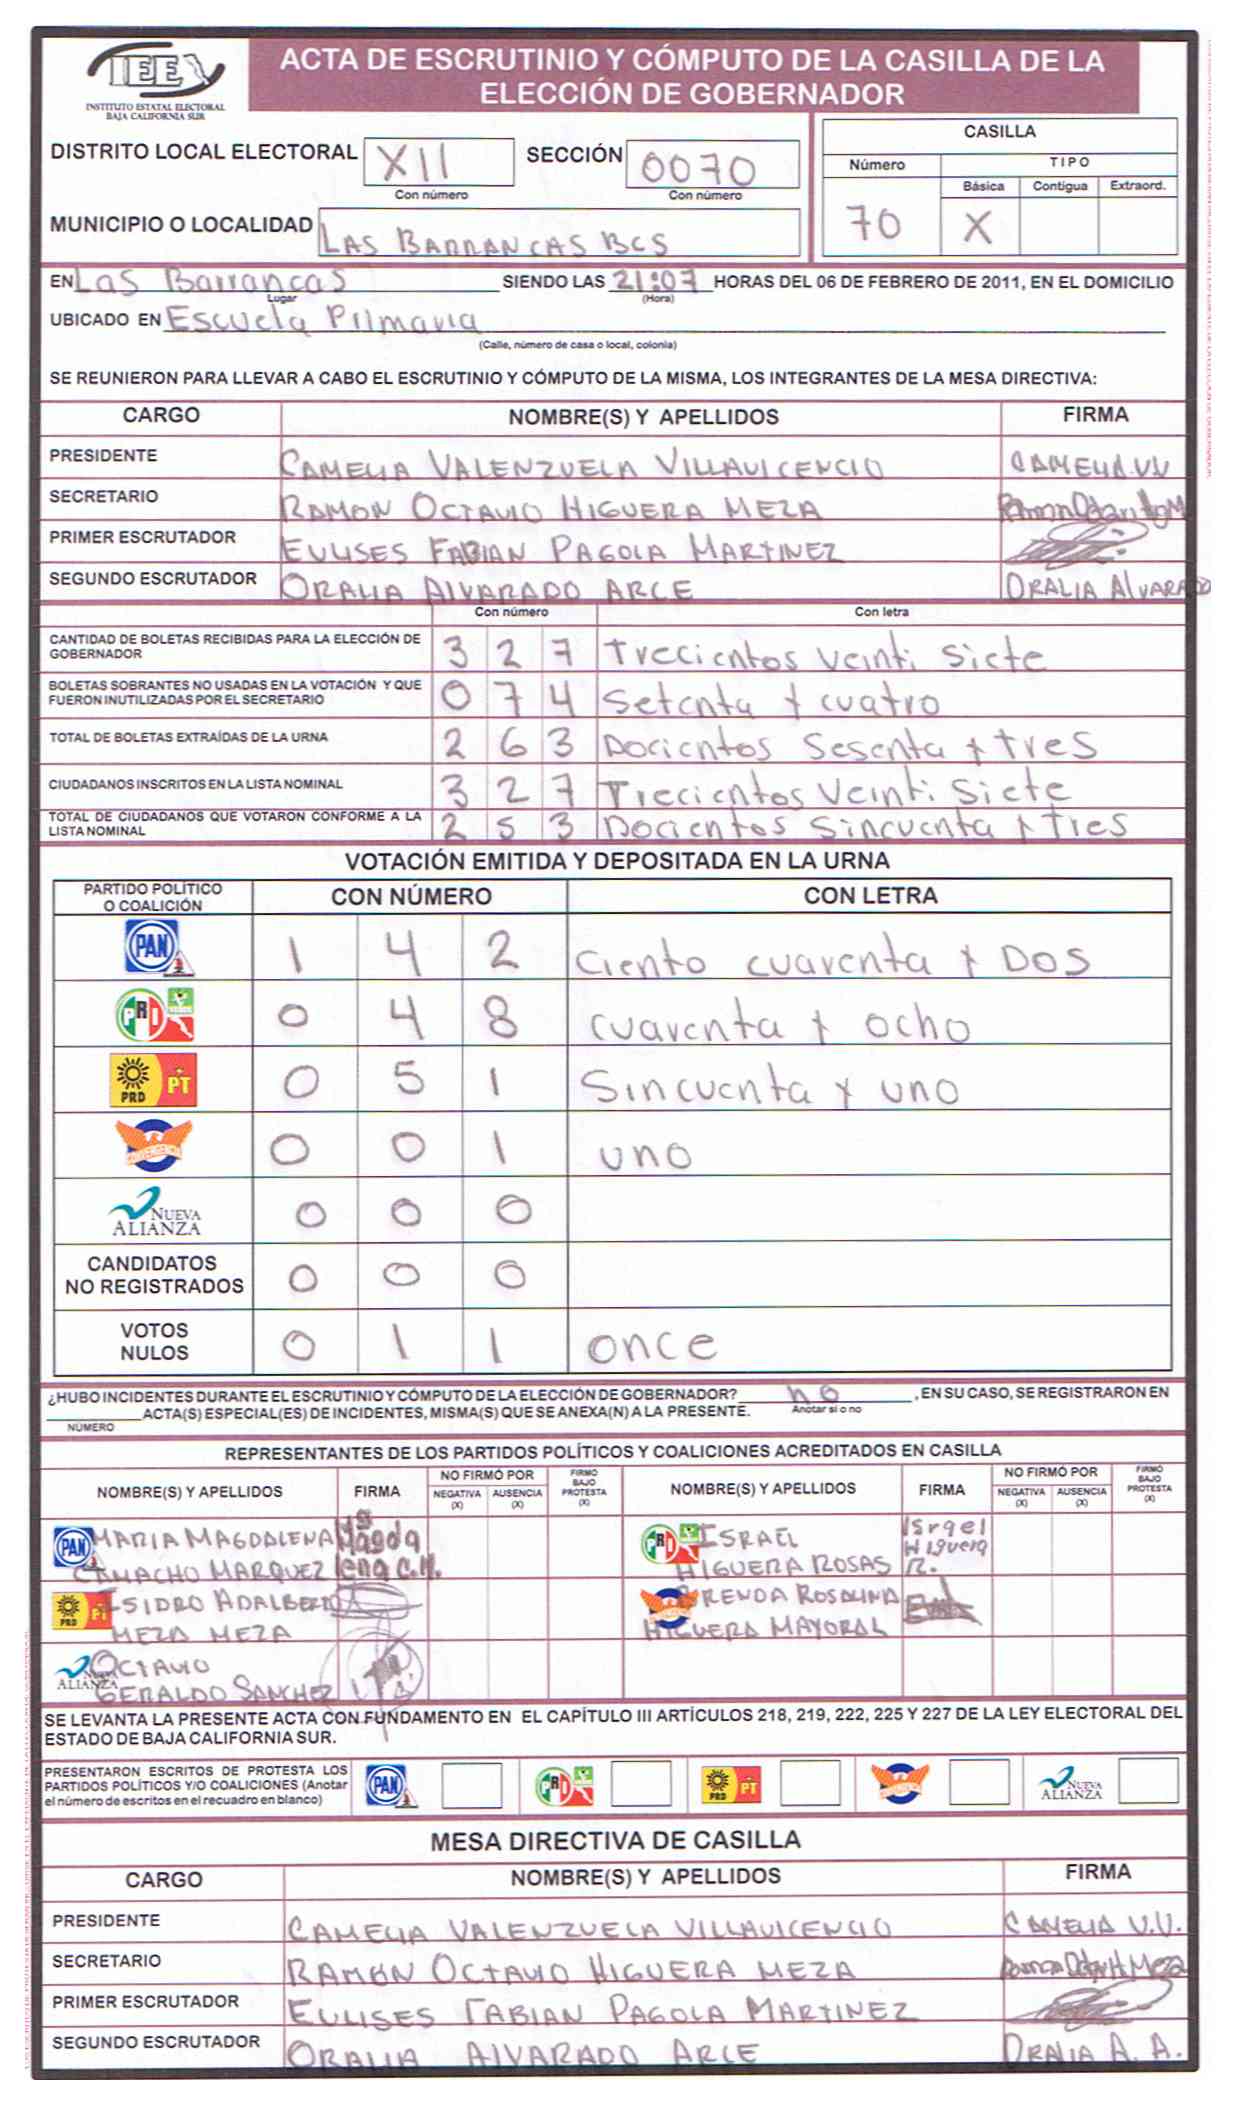 IEE
INSTITUTO ESTATAL ELECTORAL
BAJA CALIFORNIA SUR
ACTA DE ESCRUTINIO Y CÓMPUTO DE LA CASILLA DE LA
ELECCIÓN DE GOBERNADOR
DISTRITO LOCAL ELECTORAL XII SECCIÓN 0070
Con número Con número
MUNICIPIO O LOCALIDAD LAS BARRANCAS BCS
CASILLA
Número TIPO
Básica Contigua Extraord.
70 X
EN Las Barrancas SIENDO LAS 21:07 HORAS DEL 06 DE FEBRERO DE 2011, EN EL DOMICILIO
Lugar (Hora)
UBICADO EN Escuela Primaria
(Calle, número de casa o local, colonia)
SE REUNIERON PARA LLEVAR A CABO EL ESCRUTINIO Y CÓMPUTO DE LA MISMA, LOS INTEGRANTES DE LA MESA DIRECTIVA:
CARGO NOMBRE(S) Y APELLIDOS FIRMA
PRESIDENTE CAMELIA VALENZUELA VILLAVICENCIO CAMELIA V.V
SECRETARIO RAMON OCTAVIO HIGUERA MEZA
PRIMER ESCRUTADOR EULISES FABIAN PAGOLA MARTINEZ
SEGUNDO ESCRUTADOR ORALIA ALVARADO ARCE ORALIA ALVARADO
Con número Con letra
CANTIDAD DE BOLETAS RECIBIDAS PARA LA ELECCIÓN DE
GOBERNADOR 3 2 7 Trecientos veinti siete
BOLETAS SOBRANTES NO USADAS EN LA VOTACIÓN Y QUE
FUERON INUTILIZADAS POR EL SECRETARIO 0 7 4 Setenta y cuatro
TOTAL DE BOLETAS EXTRAÍDAS DE LA URNA 2 6 3 Docientos Sesenta y tres
CIUDADANOS INSCRITOS EN LA LISTA NOMINAL 3 2 7 Trecientos Veinti Siete
TOTAL DE CIUDADANOS QUE VOTARON CONFORME A LA
LISTA NOMINAL 2 5 3 Docientos Sincuenta y tres
VOTACIÓN EMITIDA Y DEPOSITADA EN LA URNA
PARTIDO POLÍTICO
O COALICIÓN CON NÚMERO CON LETRA
PAN 1 4 2 ciento cuarenta y DOS
PRI VERDE 0 4 8 cuarenta y ocho
PRD PT 0 5 1 Sincuenta y uno
CONVERGENCIA 0 0 1 uno
NUEVA
ALIANZA 0 0 0
CANDIDATOS
NO REGISTRADOS 0 0 0
VOTOS
NULOS 0 1 1 once
¿HUBO INCIDENTES DURANTE EL ESCRUTINIO Y CÓMPUTO DE LA ELECCIÓN DE GOBERNADOR? no , EN SU CASO, SE REGISTRARON EN
ACTA(S) ESPECIAL(ES) DE INCIDENTES, MISMA(S) QUE SE ANEXA(N) A LA PRESENTE. Anotar si o no
NÚMERO
REPRESENTANTES DE LOS PARTIDOS POLÍTICOS Y COALICIONES ACREDITADOS EN CASILLA
NOMBRE(S) Y APELLIDOS FIRMA NO FIRMÓ POR NEGATIVA (X) AUSENCIA (X) FIRMÓ BAJO PROTESTA (X) NOMBRE(S) Y APELLIDOS FIRMA NO FIRMÓ POR NEGATIVA (X) AUSENCIA (X) FIRMÓ BAJO PROTESTA (X)
PAN MARIA MAGDALENA Mª Magda PRI ISRAEL Israel Higuera
CAMACHO MARQUEZ lena C.M. HIGUERA ROSAS R.
PRD PT ISIDRO ADALBERTO BRENDA ROSALINA
MEZA MEZA HIGUERA MAYORAL
NUEVA ALIANZA OCTAVIO
GERALDO SANCHEZ
SE LEVANTA LA PRESENTE ACTA CON FUNDAMENTO EN EL CAPÍTULO III ARTÍCULOS 218, 219, 222, 225 Y 227 DE LA LEY ELECTORAL DEL
ESTADO DE BAJA CALIFORNIA SUR.
PRESENTARON ESCRITOS DE PROTESTA LOS
PARTIDOS POLÍTICOS Y/O COALICIONES (Anotar
el número de escritos en el recuadro en blanco) PAN PRI VERDE PRD PT CONVERGENCIA NUEVA ALIANZA
MESA DIRECTIVA DE CASILLA
CARGO NOMBRE(S) Y APELLIDOS FIRMA
PRESIDENTE CAMELIA VALENZUELA VILLAVICENCIO CAMELIA V.V.
SECRETARIO RAMÓN OCTAVIO HIGUERA MEZA
PRIMER ESCRUTADOR EULISES FABIAN PAGOLA MARTINEZ
SEGUNDO ESCRUTADOR ORALIA ALVARADO ARCE ORALIA A. A.